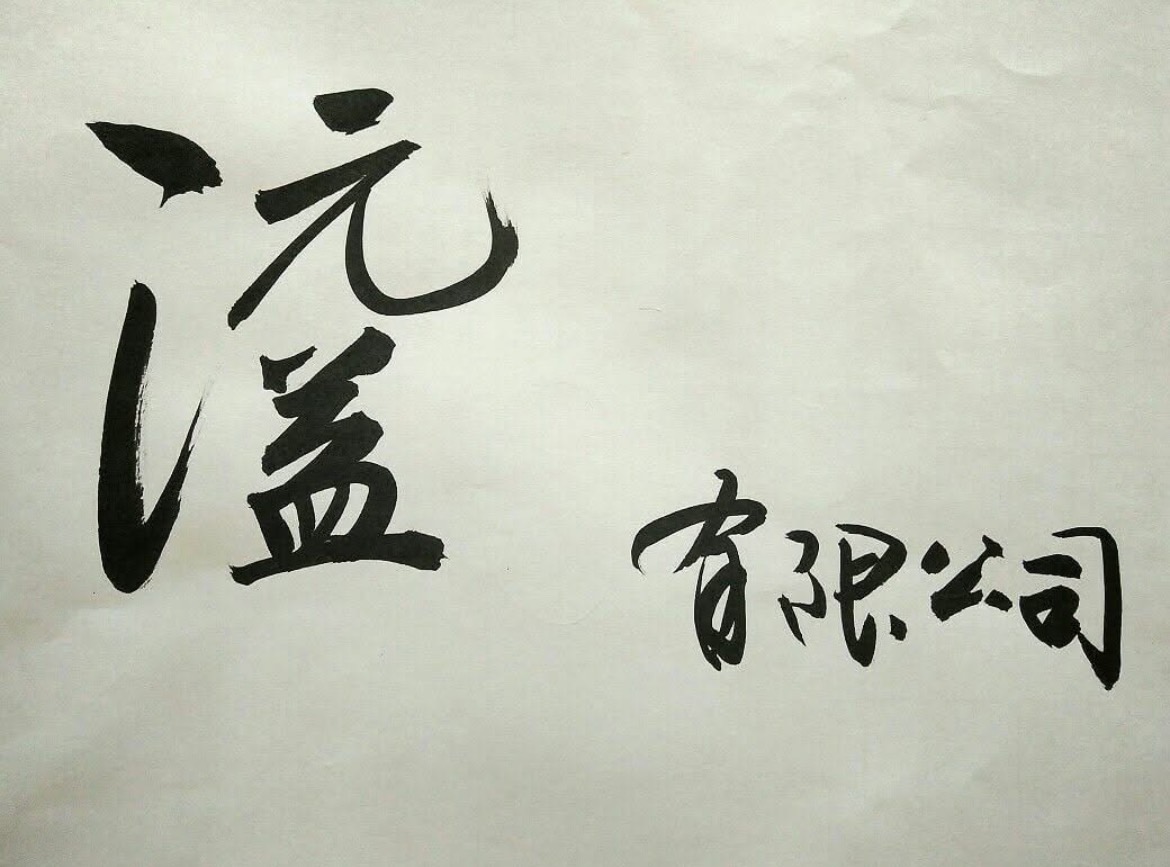 沅溢
有限公司